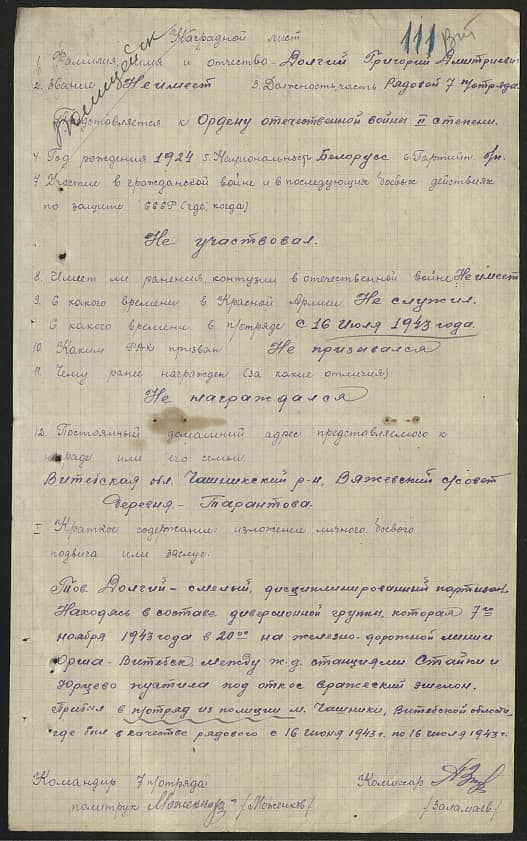 Наградной лист
111
Полицейск
1. Фамилия, имя и отчество – Долгий Григорий Дмитриевич
2. Звание Не имеет 3. Должность, часть Рядовой 7 п/отряда.
Представляется к Ордену отечественной войны II степени.
4. Год рождения 1924 5. Национальность Белорусс 6. Партийн. б/п.
7. Участие в гражданской войне и в последующих боевых действиях
по защите СССР (где, когда)
Не участвовал.
8. Имеет ли ранения, контузии в отечественной войне Не имеет
9. С какого времени в Красной Армии Не служил.
С какого времени в п/отряде с 16 Июля 1943 года.
10 Каким РВК призван Не призывался
11. Чему ранее награжден (за какие отличия)
Не награждался
12. Постоянный домашний адрес представляемого к
награде или его семьи.
Витебская обл. Чашникский р-н, Вяжевский с/совет
Деревня – Тарантова.
I Краткое содержание: изложении личного боевого
подвига или заслуг.
Тов. Долгий – смелый, дисциплинированный партизан.
Находясь в составе диверсионной группы, которая 7го
ноября 1943 года в 20оо на железно-дорожной линии
Орша-Витебск, между ж.д. станциями Стайки и
Юрцево пустила под откос вражеский эшелон.
Прибыл в п/отряд из полиции м. Чашники, Витебской области,
где был в качестве рядового с 16 июня 1943 г. по 16 июля 1943 г.
Командир 7 п/отряда Комиссар
политрук /Моженков/ /Заламаев/